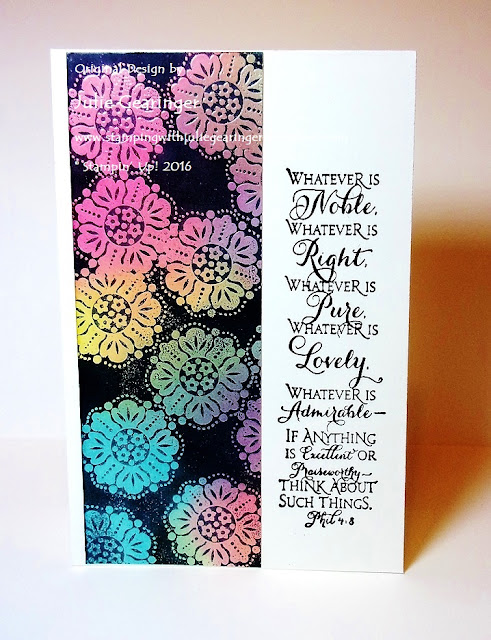 Original Design by
Julie Gearinger
www.stampingwithjuliegearinger
Stampin' Up! 2016
WHATEVER IS
Noble,
WHATEVER IS
Right,
WHATEVER IS
Pure,
WHATEVER IS
Lovely,
WHATEVER IS
Admirable—
IF ANYTHING
IS Excellent OR
Praiseworthy—
THINK ABOUT
SUCH THINGS.
Phil 4:8